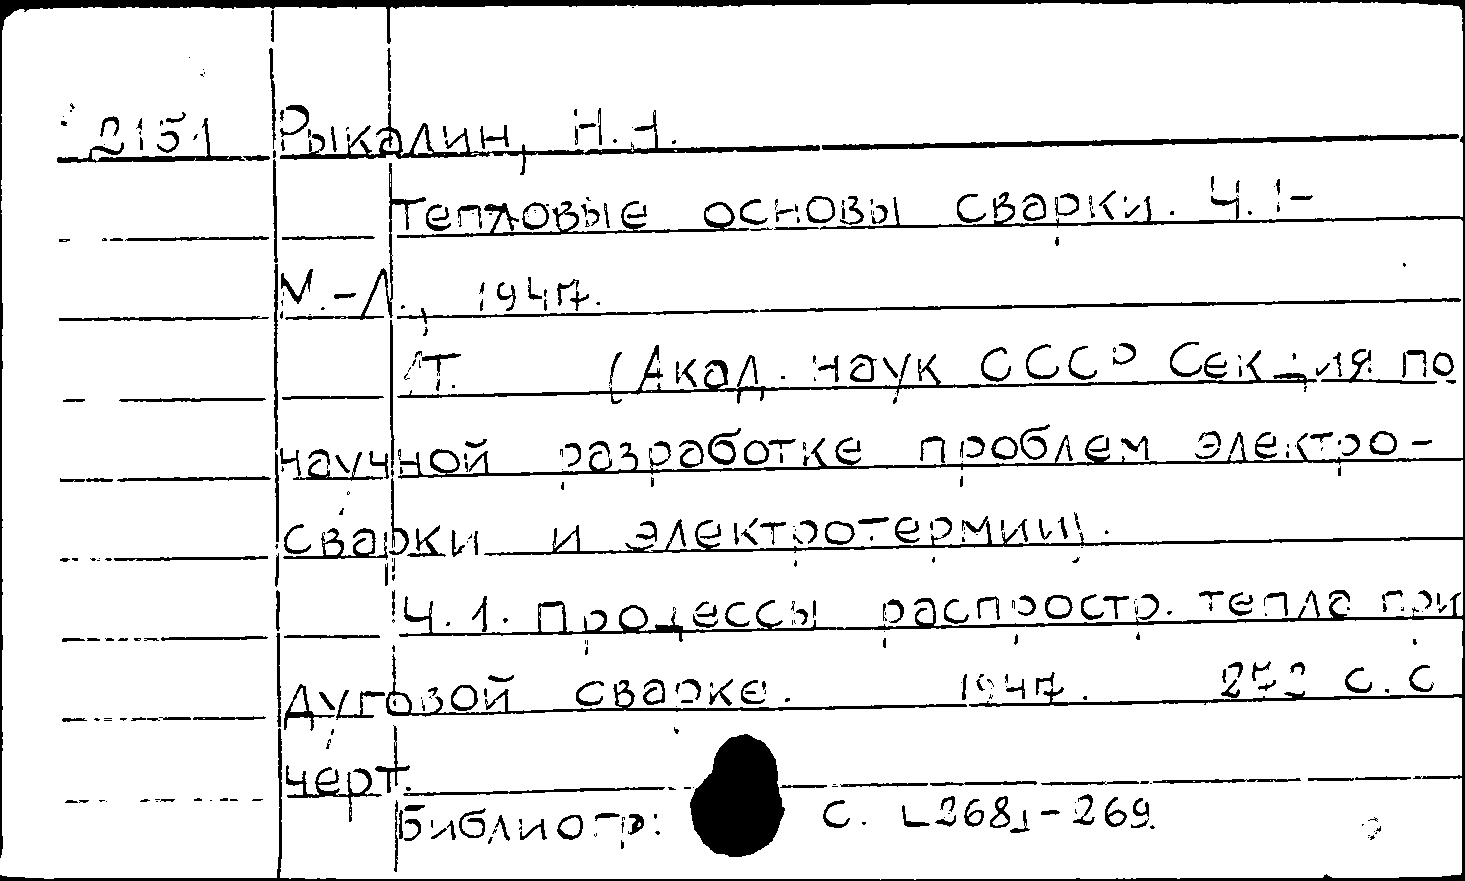 2151 Рыкалин, Н.Н.
Тепловые основы сварки. Ч.1-
М.-Л., 1947.
1т. (Акад. наук СССР Секция по
научной разработке проблем электро-
сварки и электротермии).
Ч.1. Процессы распростр. тепла при
дуговой сварке. 1947. с. с
черт.
Библиогр: с. [268]-269.